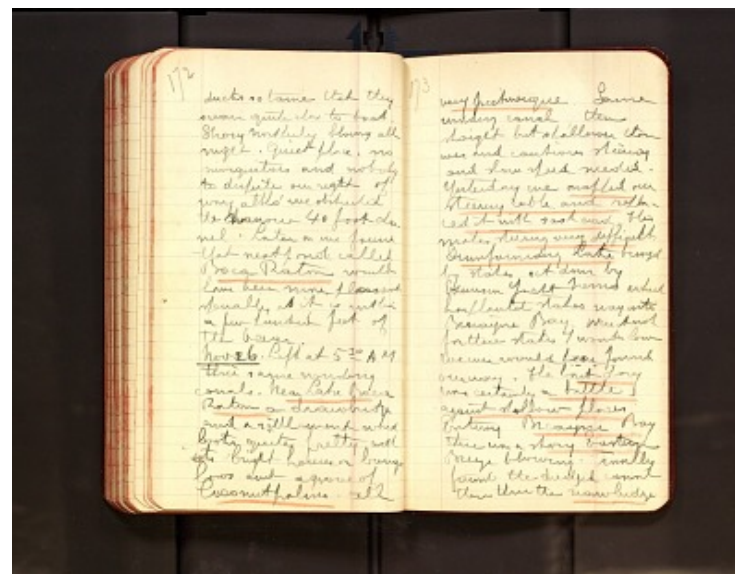 172
ducks so tame that they
swam quite close to boat.
Strong northerly blowing all
night. Quiet place, no
mosquitoes and nobody
to dispute our right of
way altho' we obstructed
the narrow 40 foot chan
nel. Later on we found
that next pond called
Boca Raton would
have been more pleasant
as it is within
a few hundred feet of
the ocean.
Nov 26. Left at 5 30 AM
thro' same winding
canals. Near Lake Boca
Raton a drawbridge
and a settlement which
looks quite pretty with
its bright houses or bunga
lows and a grove of
Coconut palms. all
173
very picturesque. Same
winding canal then
straight but shallower than
ever and cautious steering
and slow speed needed.
Yesterday we
steering cable and repla-
ced it with This
makes steering very difficult.
Lake
by stakes set down by
which
has planted stakes way into
Biscayne Bay. Were it not
for these stakes I wonder how
we would have found
our way. The last day
was certainly a battle
against shallow places
Entering Biscayne Bay
there was a strong eastern
breeze blowing. Finally
found the dredged channel
then thro the new bridge